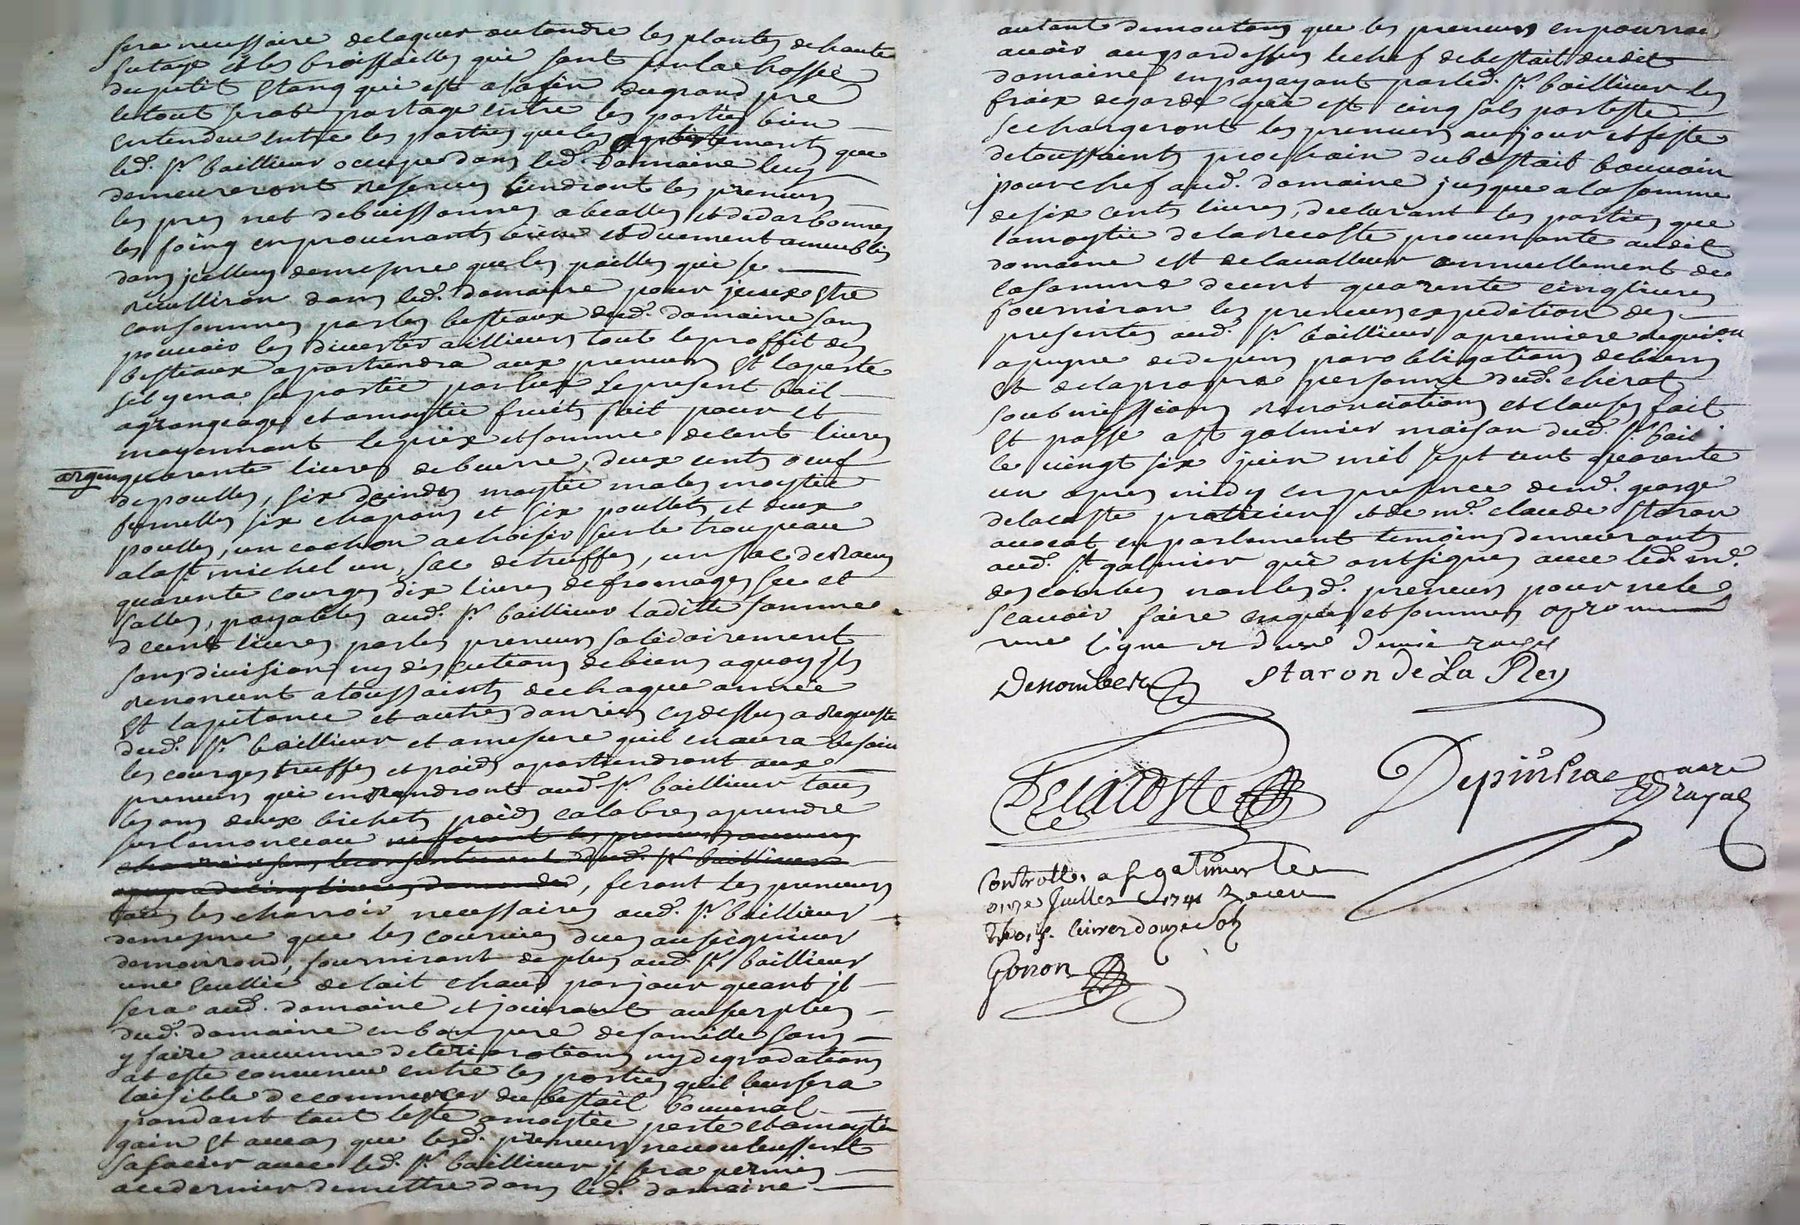 sera necessaire delaguer ou tondre les plantes de haute
futaye et les broissailles qui sont sur la chossee
du petit Etang qui est a la fin du grand pre
le tout serat partage entre les parties bien
entendeu entre les parties que les apartements que
led. Sr. bailleur occupe dans led. domaine luy
demeureront reserves tiendront les preneurs
les pres net de buissonnes abealles et de darbonnes
les foing en prouenants bien et duement ameublis
dans jcelluy de mesme que les pailles qui se
reculliron dans led. domaine pour jceux estre
consommes par les bestiaux dud. domaine sans
pouuoir les diuertir ailleurs tout le proffit des
bestiaux apartiendra aux preneurs et la perte
sil y en a se portée par eux le present bail
a grangeage et a moytie fruits fait pour et
moyennant le prix et somme de cent liures
argent quarente liures de beurre, deux cents oeuf
de poulles, six deindes moytie males moytie
femelles six chapons et six poullets et deux
poulles, un cochon a choisir sur le troupeau
a la st. michel un sac de truffes, un sac de raues
quarente courges dix liures de fromages sec et
salles, payables aud. Sr. bailleur laditte somme
de cent liures par les preneurs solidairement
sans diuision ny discutions de biens a quoy ils
renoncent a toussaints de chaque année
Et la pitance et autres danrées cy dessus a requeste
dud. Sr. bailleur et a mesure quil en aura besoin
les courges truffes et poids apartiendront aux
preneurs qui en rendront aud. Sr. bailleur tous
les ans deux bichets poids calabres a prendre
sur le monceau ne feront les preneurs aucuns
charrois sans le consentement dud. Sr. bailleur
a peyne de cinq liures damande, feront les preneurs
tous les charrois necessaires aud. Sr. bailleur
de mesme que les couruées dues au seigneur
de mourond, fourniront de plus aud. Sr. bailleur
une culliée de lait chaud par jour quant jl
sera aud. domaine et jouiront au surplus
dud. domaine en bon pere de famille sans
y faire aucunne deteriorations ny degradations
at este conuenu entre les parties quil leur sera
loisible de commercer du bestail bouuinal
pendant tout leste a moytie perte et a moytie
gain Et au cas que lesd. preneurs ne voulussent
sasocier auec led. Sr. bailleur jl sera permis
a ce dernier de mettre dans led. domaine
autant de moutons que les preneurs en pourront
auoir au pardessus le chef de bestail dudit
domaine en payant par led. Sr. bailleur les
fraix de garde qui est cinq sols par teste
se chargeront les preneurs au jour et feste
de toussaints prochain du bestail bouuin
pour chef aud. domaine jusque a la somme
de six cents liures, declarant les parties que
la moytie de la recolte prouenante audit
domaine est de la valleur annuellement de
la somme de cent quarente cinq liures
fourniron les preneurs expedition des
presentes aud. Sr. bailleur a premiere requion
a peyne de depens par obligations de biens
et de la propre personne dud. cherat
soubmissions renonciations et clauses fait
Et passe a st galmier maison dud. Sr. bail.
le vingt six juin mil sept cent quarente
un apres midy en presence de md. george
delacoste praticien et de me. claude staron
auocat en parlement temoins demeurants
aud. st galmier qui ont signes auec led. me.
descombes non lesd. preneurs pour ne le
scauoir faire enquis et sommes aprouuant
une ligne et deux demie rayés
Descombes Staron De La Rey
Delacoste Depinhac nore
Royal
Controlle a st galmier le
onze Juillet 1741 Receu
trois liures douze sols
Gonon